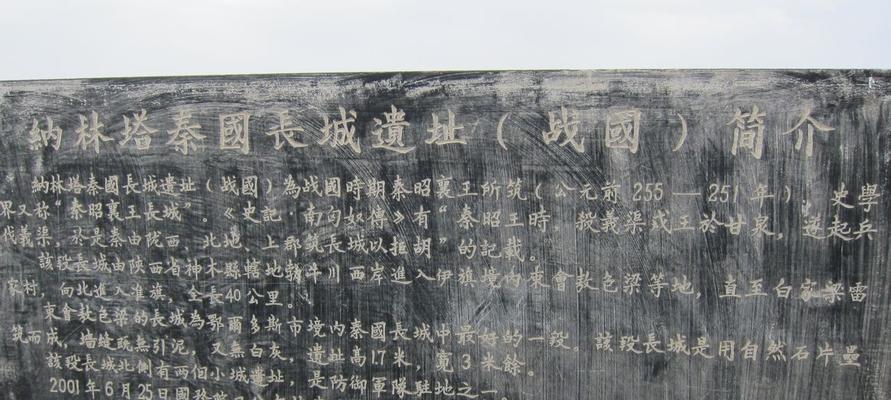 納林塔秦國長城遺址（战國）简介
納林塔秦國長城遺址（战國）為战國時期秦昭襄王所筑（公元前255—251年），史學
界又称“秦昭襄王長城”。《史記·匈奴傳》有“秦昭王時 殺義渠戎王於甘泉，遂起兵
伐義渠，於是秦由陇西、北地、上郡筑長城以拒胡”的記載。
該段長城由陕西省神木縣轄地 牛川西岸進入伊旗境内束會敖色梁等地，直至白家梁雷
家村 向北進入准旗，全長40公里。
束會敖色梁的長城為鄂爾多斯市境内秦國長城中最好的一段。該段長城是用自然石片壘
筑而成，墙縫既無引泥，又無白灰，遺址高1.7米，寬3米餘。
該段長城北側有两個小城遺址，是防御軍隊駐地之一。
2001年6月25日國務院